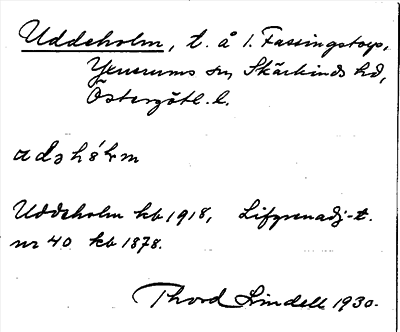 Uddeholm, t. å 1. Fassingstorp,
Yxnerums sn, Skärkinds hd,
Östergötl. l.
Uddeholm kb 1918, Lifgrenadj-t.
nr 40 kb 1878.
Thord Lindell 1930.